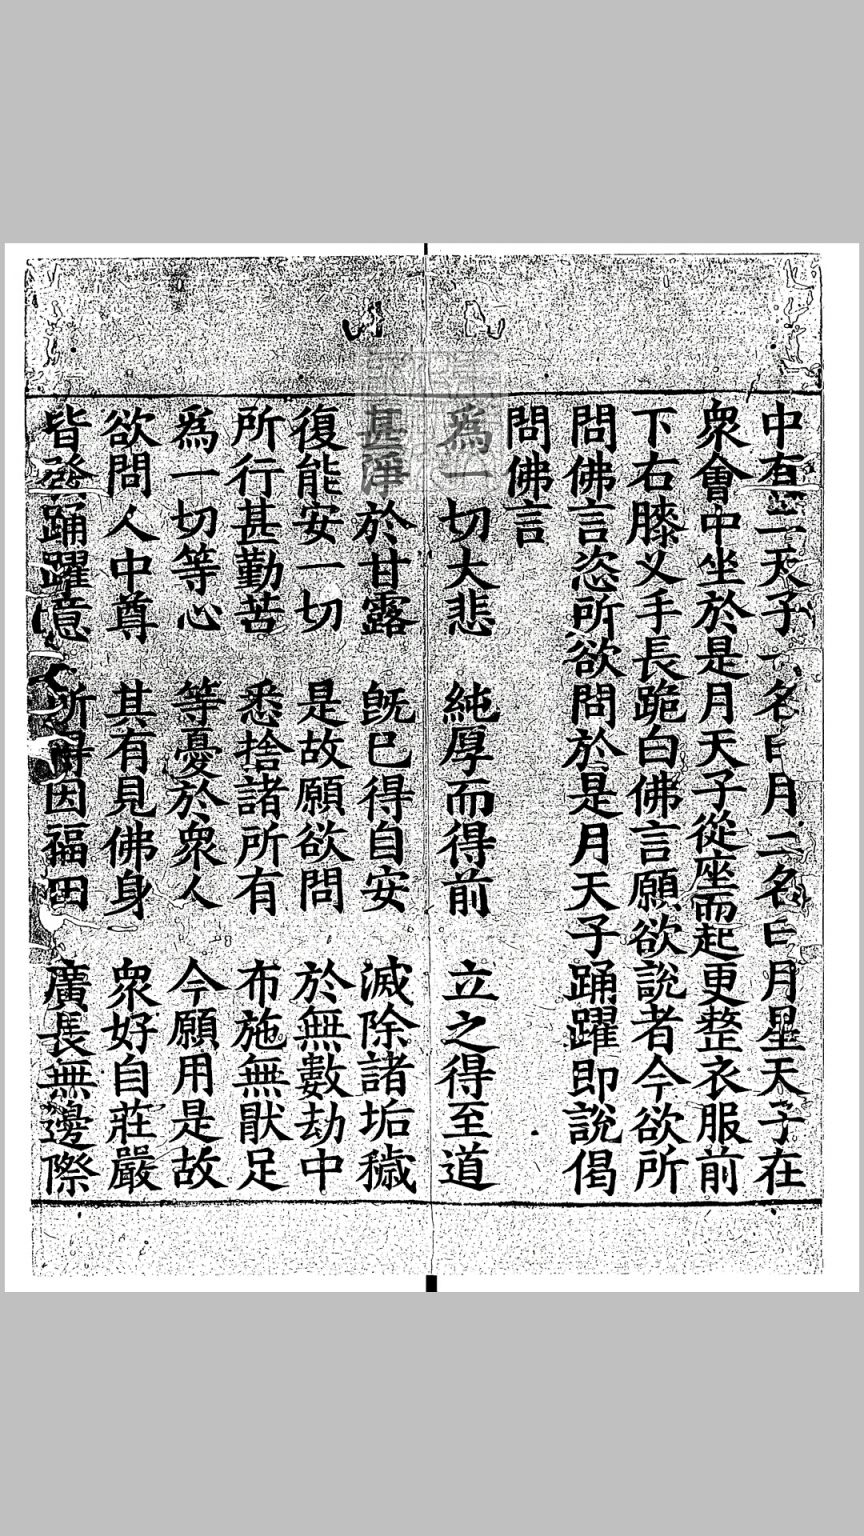 中有二天子一名曰月二名曰月星天子在
衆會中坐於是月天子從座而起更整衣服前
下右膝叉手長跪白佛言願欲說者今欲所
問佛言恣所欲問於是月天子踊躍即說偈
問佛言
爲一切大悲　純厚而得前　立之得至道
甚淨於甘露　旣已得自安　滅除諸垢穢
復能安一切　是故願欲問　於無數劫中
所行甚勤苦　悉捨諸所有　布施無猒足
爲一切等心　等憂於衆人　今願用是故
欲問人中尊　其有見佛身　衆好自莊嚴
皆發踊躍意　所得因福田　廣長無邊際